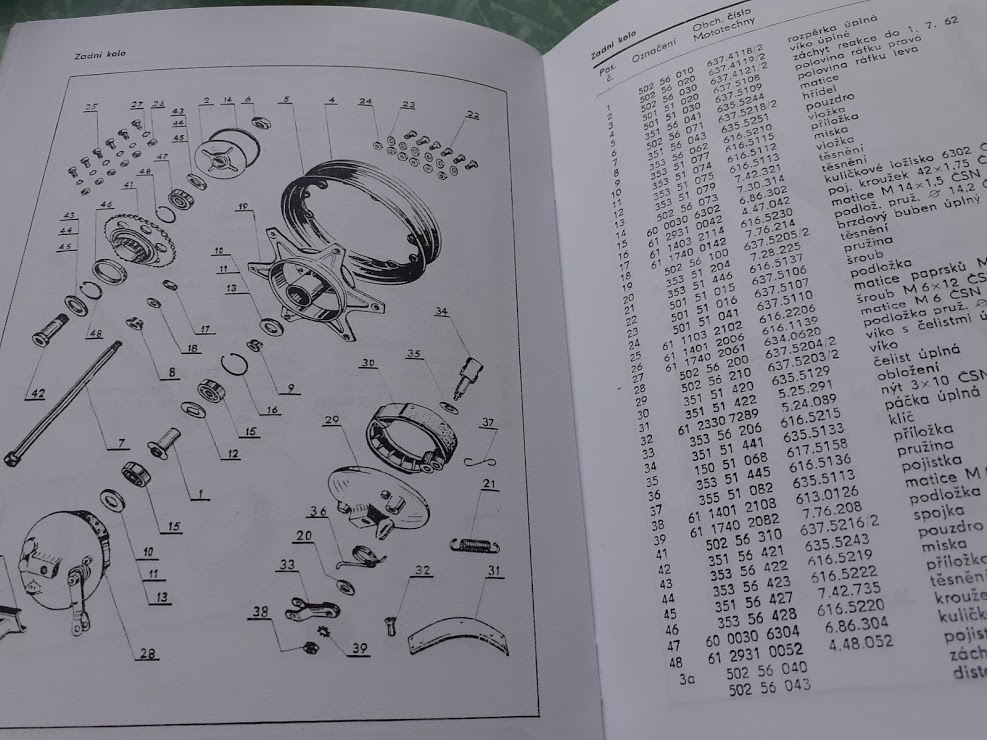 Zadní kolo
25 27 26 43 44 45 2 14 6 5 4 24 23 22
47
41
48
46
43
44
45
19
10
11
13
34
17
18
48
8
30
35
9
42
16
29
15
37
7
12
1
21
36
15
20
10
33
32
31
11
13
38
39
28
Zadní kolo
Pos. č. Označení Obch. číslo Mototechny
1 502 56 010 637.4118/2 rozpěrka úplná
2 502 56 020 637.4119/2 víko úplné
3 502 56 030 637.4121/2 záchyt reakce do 1. 7. 62
4 501 51 020 637.5108 polovina ráfku pravá
5 501 51 030 637.5109 polovina ráfku levá
6 351 56 041 635.5244 matice
7 502 56 071 637.5218/2 hřídel
8 351 56 043 635.5251 pouzdro
9 353 56 062 616.5210 vložka
10 353 51 077 616.5115 příložka
11 353 51 074 616.5112 miska
12 353 51 075 616.5113 vložka
13 353 51 079 7.42.321 těsnění
14 502 56 073 7.30.314 těsnění
15 60 0030 6302 6.86.302 kuličkové ložisko 6302 Č
16 61 2931 0042 4.47.042 poj. kroužek 42×1,75 ČSN
17 61 1403 2114 616.5230 matice M 14×1,5 ČSN
18 61 1740 0142 7.76.214 podlož. pruž. ⌀ 14,2 Č
19 502 56 100 637.5205/2 brzdový buben úplný
20 353 51 204 7.28.225 těsnění
21 351 51 446 616.5137 pružina
22 501 51 015 637.5106 šroub
23 501 51 016 637.5107 podložka
24 501 51 041 637.5110 matice paprsků M
25 61 1103 2102 616.2206 šroub M 6×12 ČS
26 61 1401 2006 616.1139 matice M 6 ČSN
27 61 1740 2061 634.0620 podložka pruž. ⌀
28 502 56 200 637.5204/2 víko s čelistmi ú
29 502 56 210 637.5203/2 víko
30 351 51 420 635.5129 čelist úplná
31 351 51 422 5.25.291 obložení
32 61 2330 7289 5.24.089 nýt 3×10 ČSN
33 353 56 206 616.5215 páčka úplná
34 351 51 441 635.5133 klíč
35 150 51 068 617.5158 příložka
36 351 51 445 616.5136 pružina
37 355 51 082 635.5113 pojistka
38 61 1401 2108 613.0126 matice M
39 61 1740 2082 7.76.208 podložka
41 502 56 310 637.5216/2 spojka
42 351 56 421 635.5243 pouzdro
43 353 56 422 616.5219 miska
44 353 56 423 616.5222 příložka
45 351 56 427 7.42.735 těsnění
46 353 56 428 616.5220 krouže
47 60 0030 6304 6.86.304 kuličk
48 61 2931 0052 4.48.052 pojist
3a 502 56 040 zách
502 56 043 dist